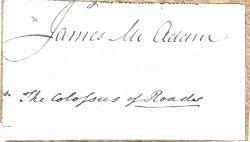 James McAdam
The Colossus of Roads